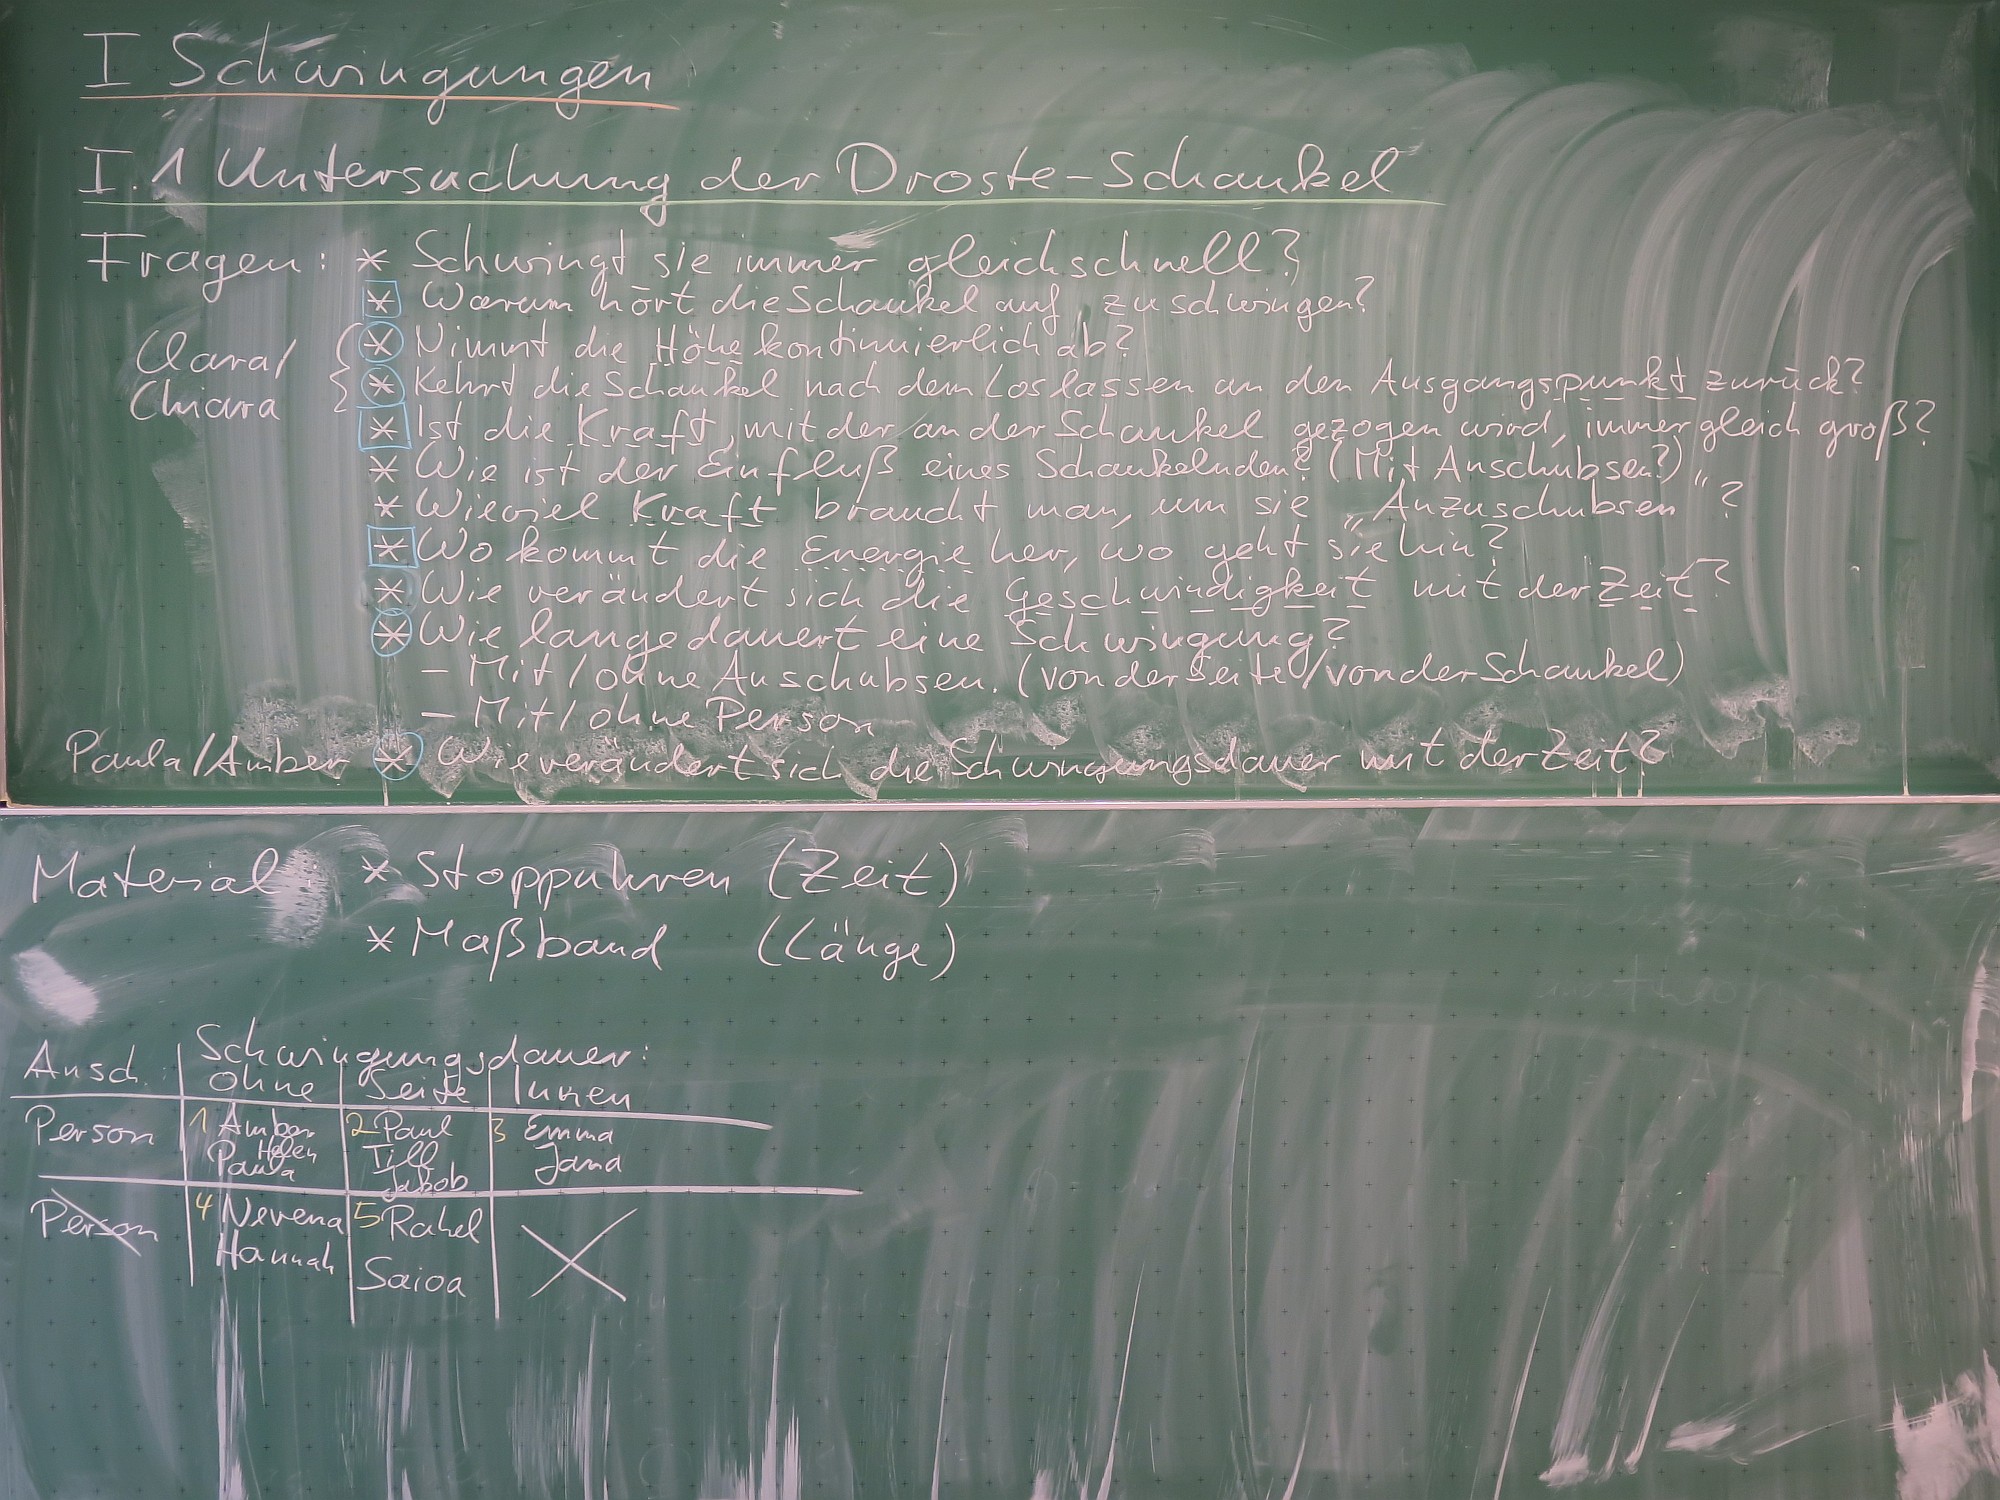 I Schwingungen
I.1 Untersuchung der Droste-Schaukel
Fragen: * Schwingt sie immer gleichschnell?
* Warum hört die Schaukel auf zu schwingen?
Clara/ Chiara { * Nimmt die Höhe kontinuierlich ab?
* Kehrt die Schaukel nach dem Loslassen an den Ausgangspunkt zurück?
* Ist die Kraft, mit der an der Schaukel gezogen wird, immer gleich groß?
* Wie ist der Einfluß eines Schaukelnden? (Mit Anschubsen?)
* Wieviel Kraft braucht man, um sie „Anzuschubsen“?
* Wo kommt die Energie her, wo geht sie hin?
* Wie verändert sich die Geschwindigkeit mit der Zeit?
* Wie lange dauert eine Schwingung?
- Mit/ohne Anschubsen. (von der Seite/von der Schaukel)
- Mit/ohne Person
Paula/Amber * Wie verändert sich die Schwingungsdauer mit der Zeit?
Material: * Stoppuhren (Zeit)
* Maßband (Länge)
Schwingungsdauer:
Ansch. ohne Seite Innen
Person 1 Amber 2 Paul 3 Emma
Helen Paula Till Jana
Jakob
Person 4 Nevena 5 Rahel
Hannah Saioa